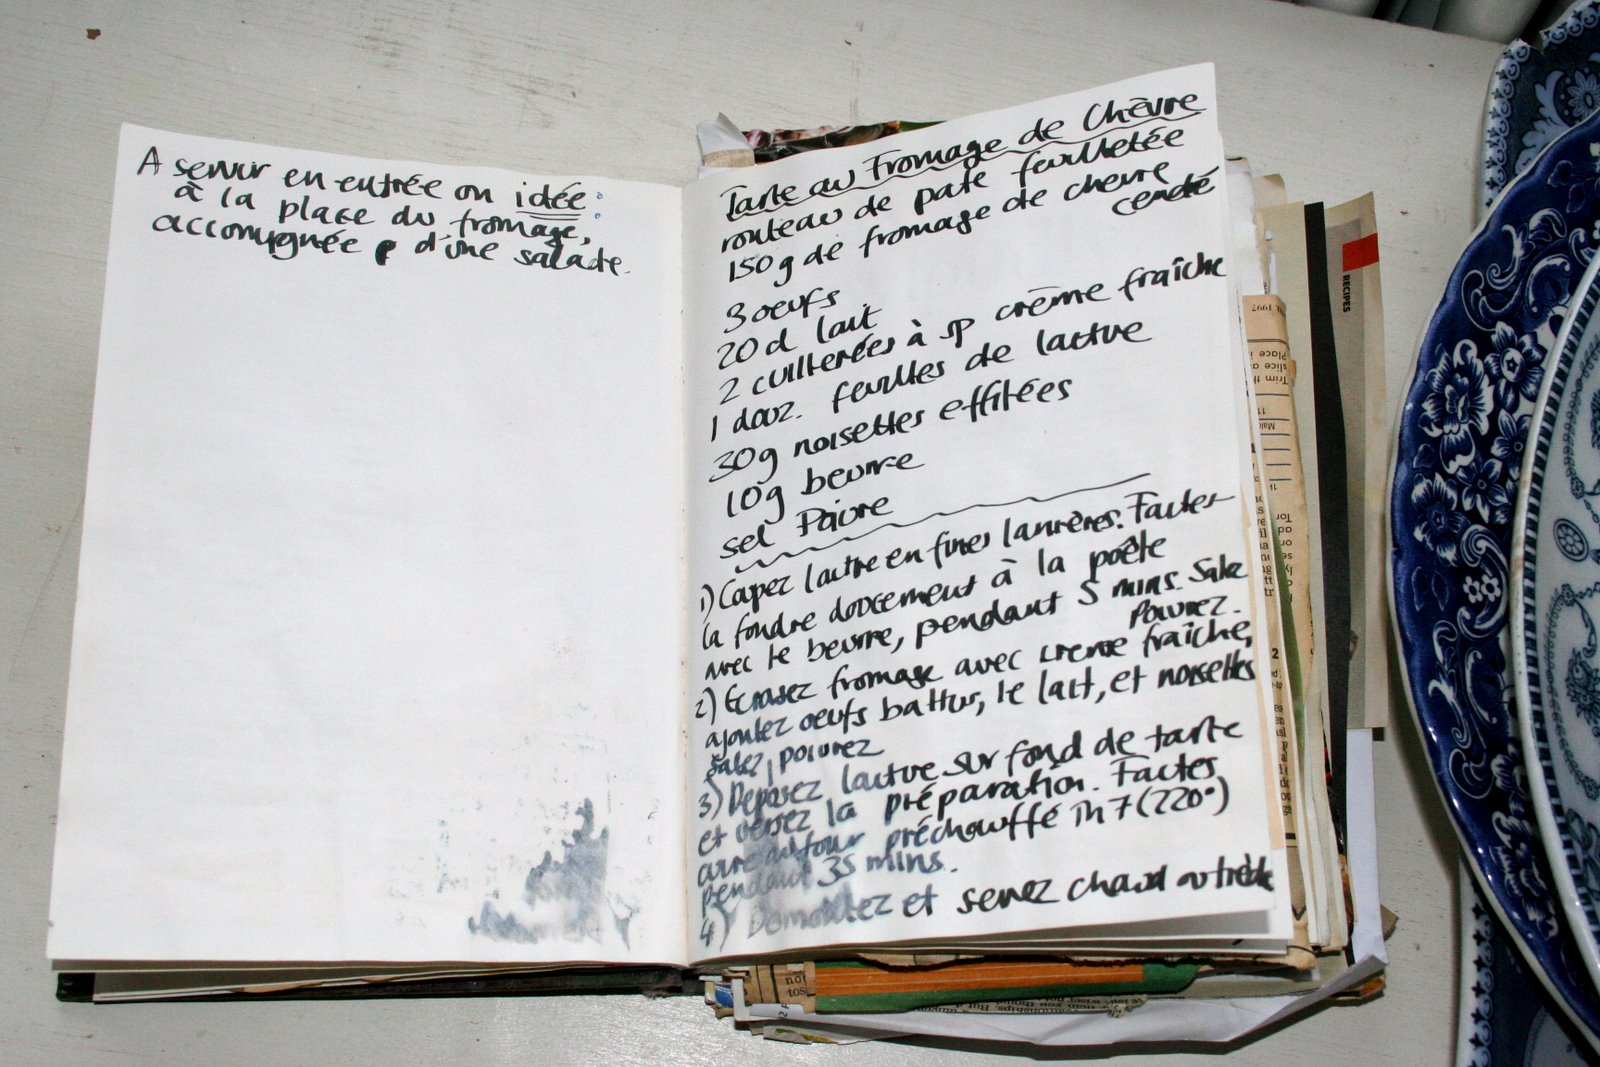 A servir en entrée ou idée :
à la place du fromage,
accompagnée d'une salade.
Tarte au Fromage de Chèvre
rouleau de pate feuilletée
150g de fromage de chevre
cendré
3 oeufs
20d lait
2 cuillerées à sp crème fraîche
1 douz. feuilles de laitue
30g noisettes effilées
10g beurre
sel Poivre
1) Coupez laitue en fines lanières. Faites
la fondre doucement à la poête
avec le beurre, pendant 5 mins. Salez
Poivrez.
2) Ecrasez fromage avec creme fraîche,
ajoutez oeufs battus, le lait, et noisettes
Salez, poivrez
3) Deposez laitue sur fond de tarte
et versez la préparation. Faites
cuire au four préchauffé Th 7 (220°)
pendant 35 mins.
4) Demoulez et servez chaud ou tiède
RECIPES
1997
Place i
slice a
Trim th